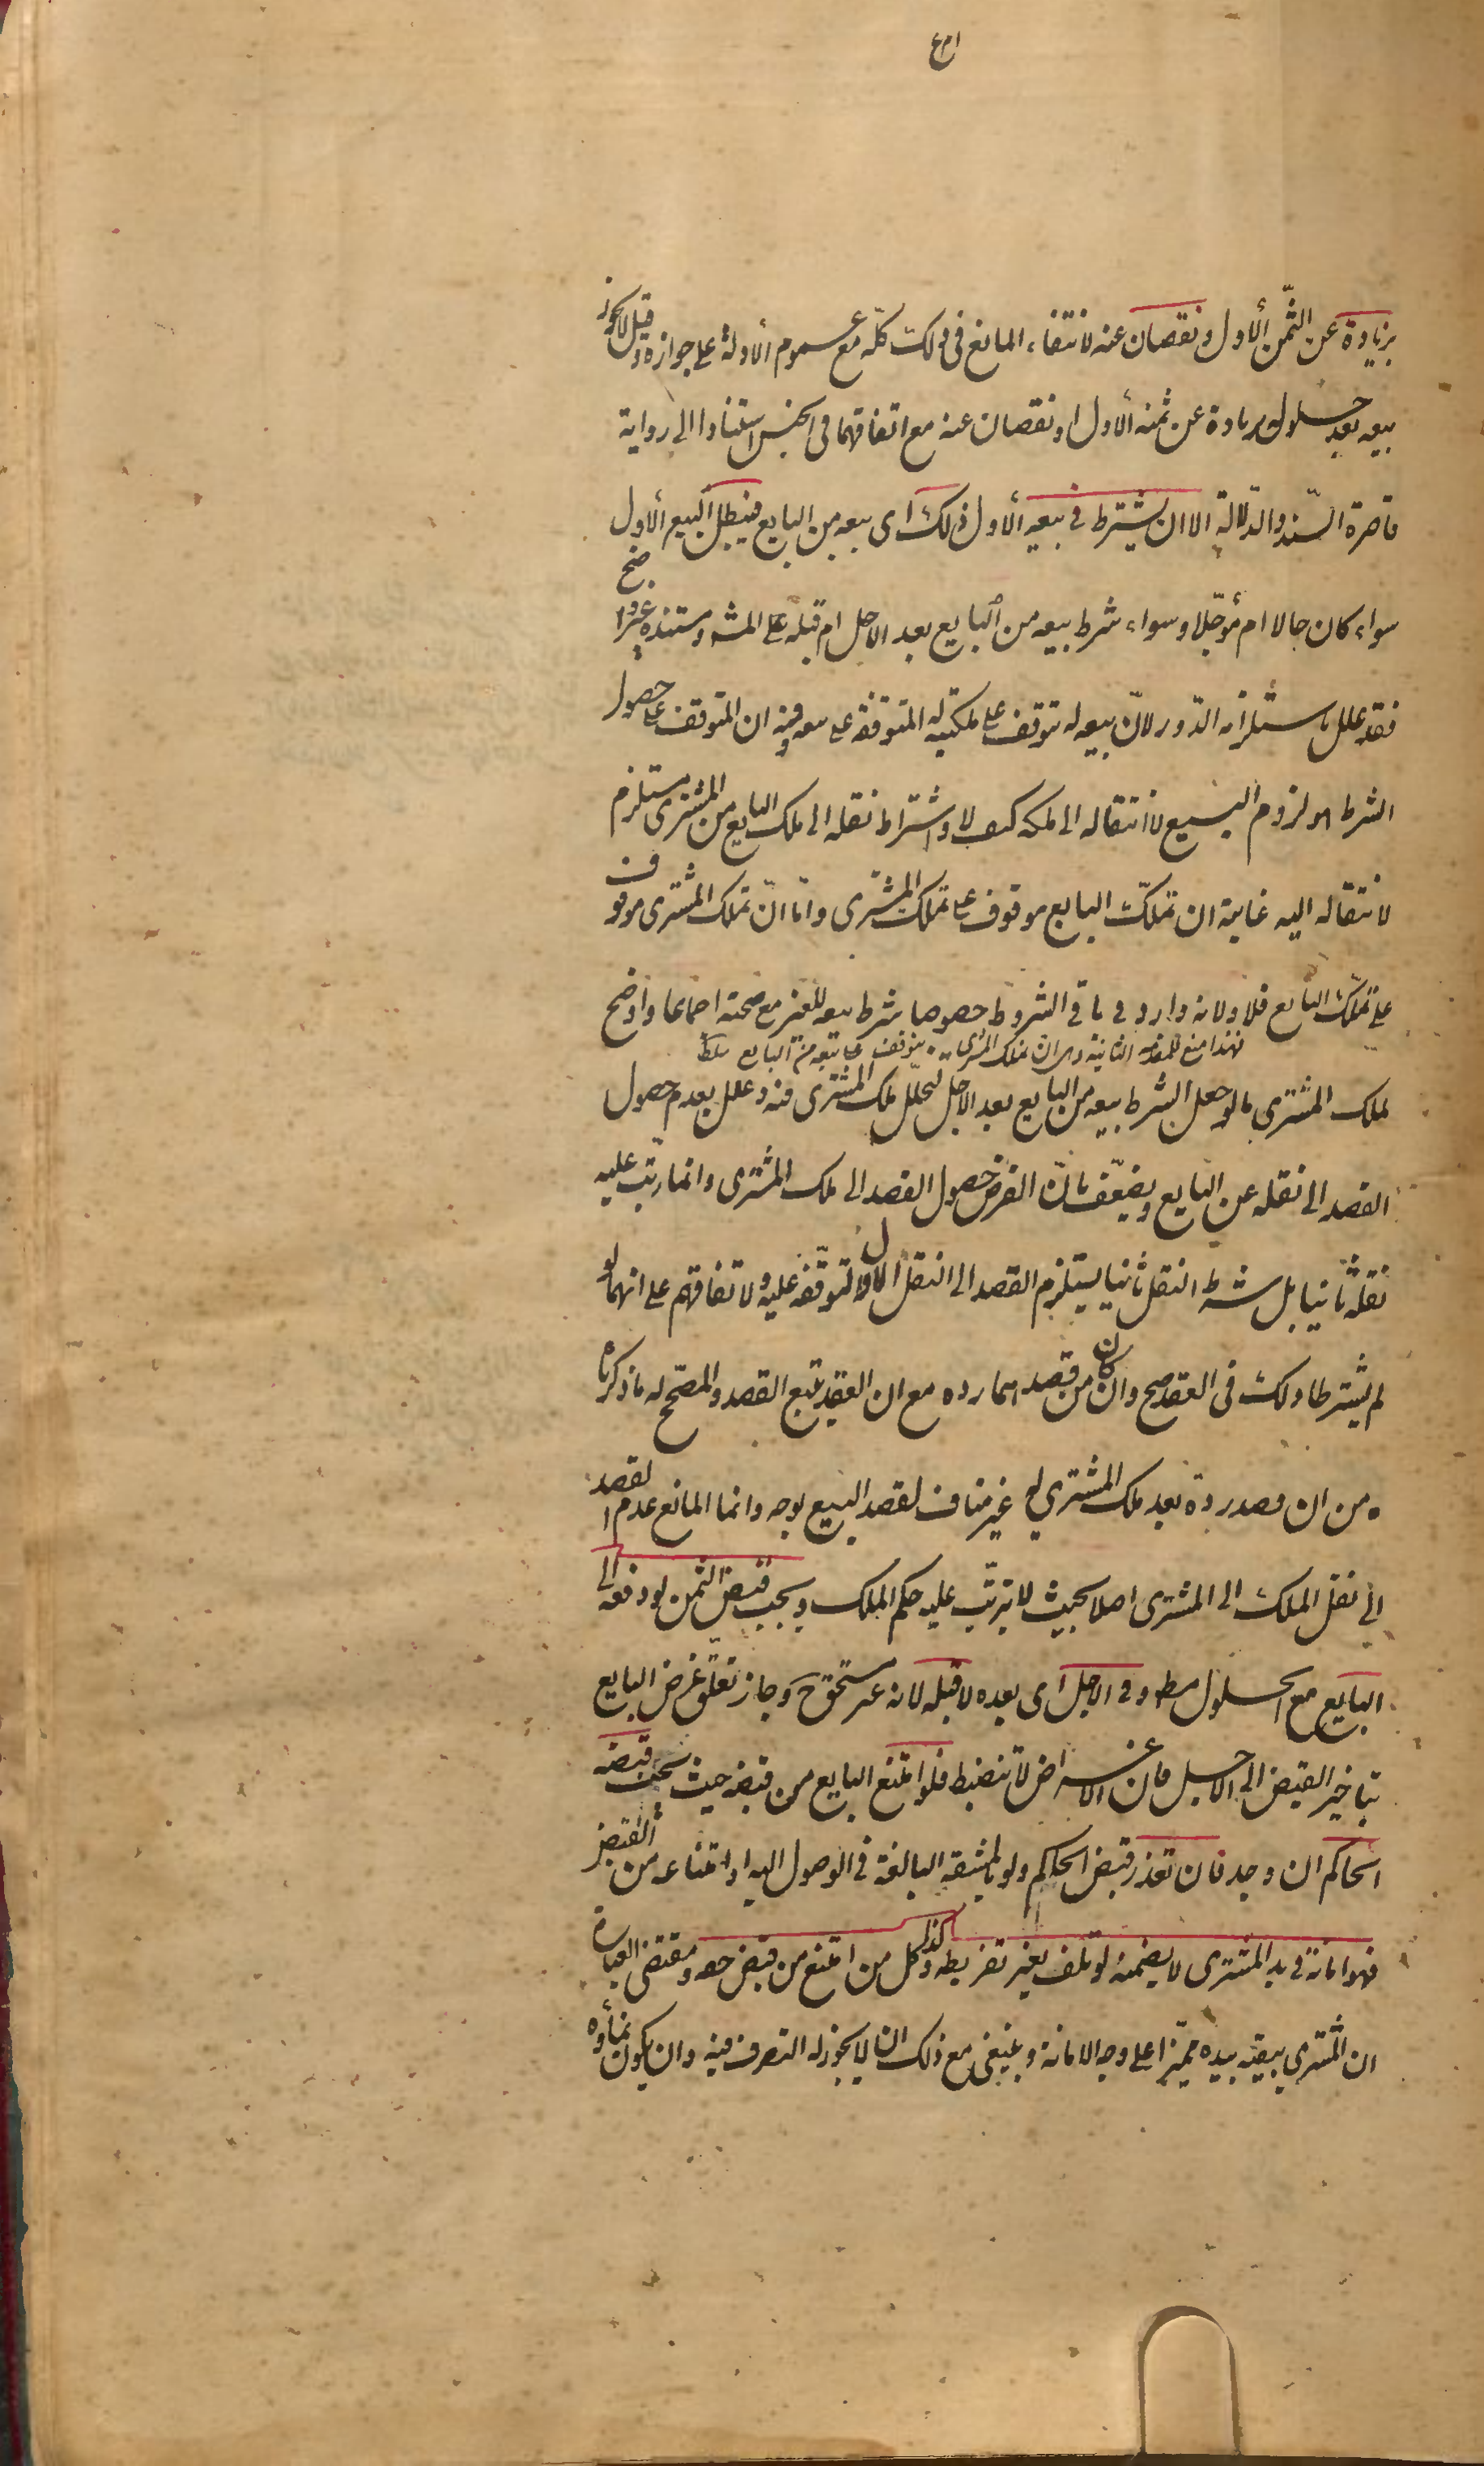 بزيادة عن الثّمن الأول و نقصان عنه لانتفاء المانع في ذلك كلّه مع عموم الأدلة على جوازه وقيل لا يجوز
بيعه بعد حلوله بزيادة عن ثمنه الأول او نقصان عنه مع اتفاقهما في الجنس استنادا الى رواية
قاصرة السّند والدّلالة الا ان يشترط في بيعه الأول ذلك اى بيعه من البايع فيبطل البيع الأول
سواء كان حالا ام مؤجّلا و سواء شرط بيعه من البايع بعد الاجل ام قبله على المش‍ ومستنده غير واضح
فقد علل باستلزامه الدّور لانّ بيعه له يتوقف على ملكيته له المتوقفة على بيعه وفيه ان المتوقف على حصول
الشرط هو لزوم البيع لا انتقاله الى ملكه كيف لا واشتراط نقله الى ملك البايع من المشترى مستلزم
لانتقاله اليه غايته ان تملّك البايع موقوف على تملك المشترى و امّا انّ تملك المشترى موقوف
على تملّك البايع فلا ولانه وارد في باقي الشروط خصوصا شرط بيعه للغير مع صحته اجماعا و أوضح
فهذا منع للمقدمة الثانية وهى ان تملك المشترى يتوقف على بيعه من البايع
لملك المشترى ما لو جعل الشرط بيعه من البايع بعد الاجل لتخلّل ملك المشترى فيه و علل بعدم حصول
القصد الى نقله عن البايع ويضعّف بانّ الفرض حصول القصد الى ملك المشترى و انما رتب عليه
نقله ثانيا بل شرط النقل ثانيا يستلزم القصد الى النقل الاول لتوقّفه عليه ولاتفاقهم على انهما لو
لم يشترطا ذلك في العقد صح و ان كان من قصدهما رده مع ان العقد يتبع القصد والمصحّح له ما ذكرنا
ه من ان قصد رده بعد ملك المشترى له غير مناف لقصد البيع بوجه و انما المانع عدم القصد
الى نقل الملك الى المشترى اصلا بحيث لا يترتّب عليه حكم الملك و يجب قبض الثمن لو دفعه الى
البايع مع الحلول مط و في الاجل اى بعده لا قبله لانه غير مستحق ح و جاز تعلّق غرض البايع
بتاخير القبض الى الاجل فان الاغراض لا تنضبط فلو امتنع البايع من قبضه حيث يجب قبضه
الحاكم ان وجد فان تعذر قبض الحاكم ولو بالمشقة البالغة في الوصول اليه او امتناعه من القبض
فهو امانة في يد المشترى لا يضمنه لو تلف بغير تفريطه وكذا كل من امتنع من قبض حقه و مقتضى العبارة
ان المشترى يبقيه بيده مميّزا على وجه الامانة و ينبغى مع ذلك ان لا يجوز له التصرف فيه و ان يكون نماؤه